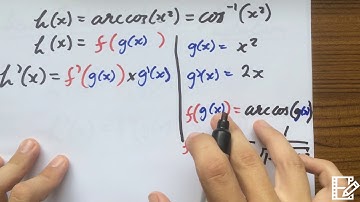 h(x) = arccos(x²) = cos⁻¹(x²)
h(x) = f(g(x))
h'(x) = f'(g(x)) × g'(x)
g(x) = x²
g'(x) = 2x
f(g(x)) = arccos(g(x))
1